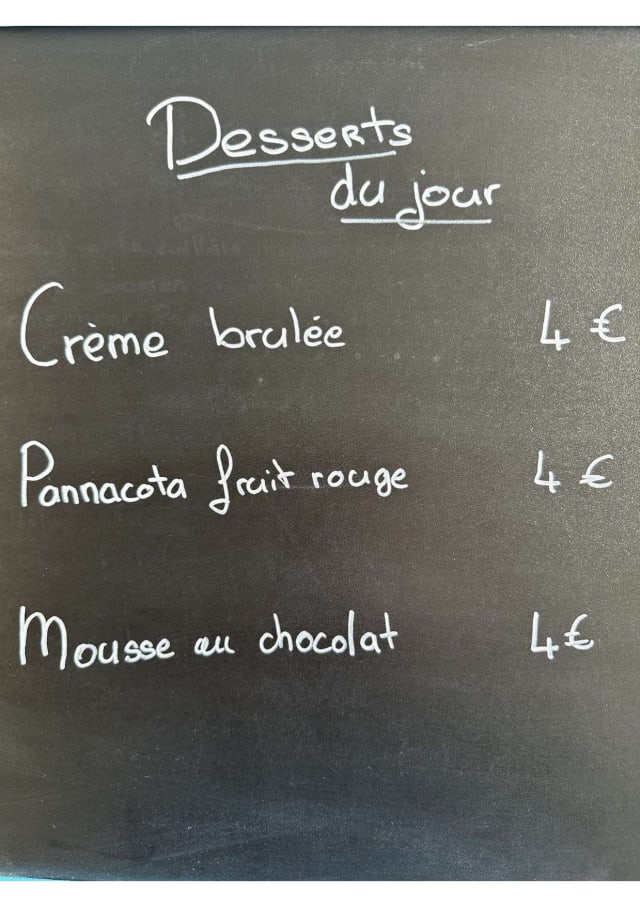 Desserts
du jour
Crème brulée 4 €
Pannacota fruit rouge 4 €
Mousse au chocolat 4€